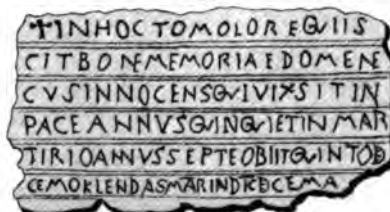 ✝INHOCTOMOLOREQVIIS
CITBONEMEMORIAEDOMENE
CVSINNOCENSQVIVIXSITIN
PACEANNVSQVINQVIETINMAR
TIRIOANNVSSEPTEOBIITQVINTOD
CEMOKLENDASMAR